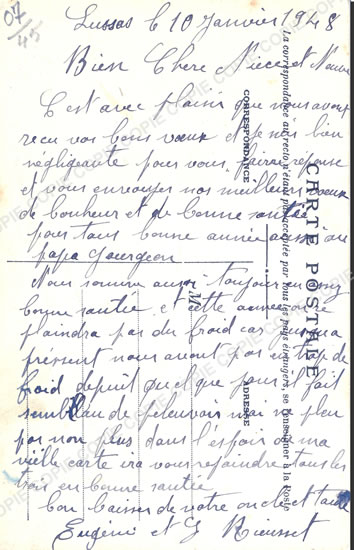 07/45
Lussas le 10 Janvier 1948
Bien Chere Niece et Neveu
C'est avec plaisir que nous avons
recu vos bons vœux et je suis bien
negligeante pour vous faire réponse
et vous envoyer nos meilleurs vœux
de bonheur et de bonne santée
pour tous bonne année aussi au
papa Gourgeon
Nous somme aussi toujour en
bonne santie et cette année on ne
plaindra pas du froid car jusqu'a
present nous avont pas eu trop de
froid depuit quelque jour il fait
semblan de pleuvoir mai ne pleu
pas non plus dans l'espoir de ma
vielle carte ira vous rejoindre tous les
trois en bonne santée
bon baiser de votre oncle et tante
Eugénie et J Rieusset
CARTE POSTALE
La correspondance au recto n'étant pas acceptée par tous les pays étrangers, se renseigner à la Poste
CORRESPONDANCE
ADRESSE
M
COPIE COPIE COPIE COPIE